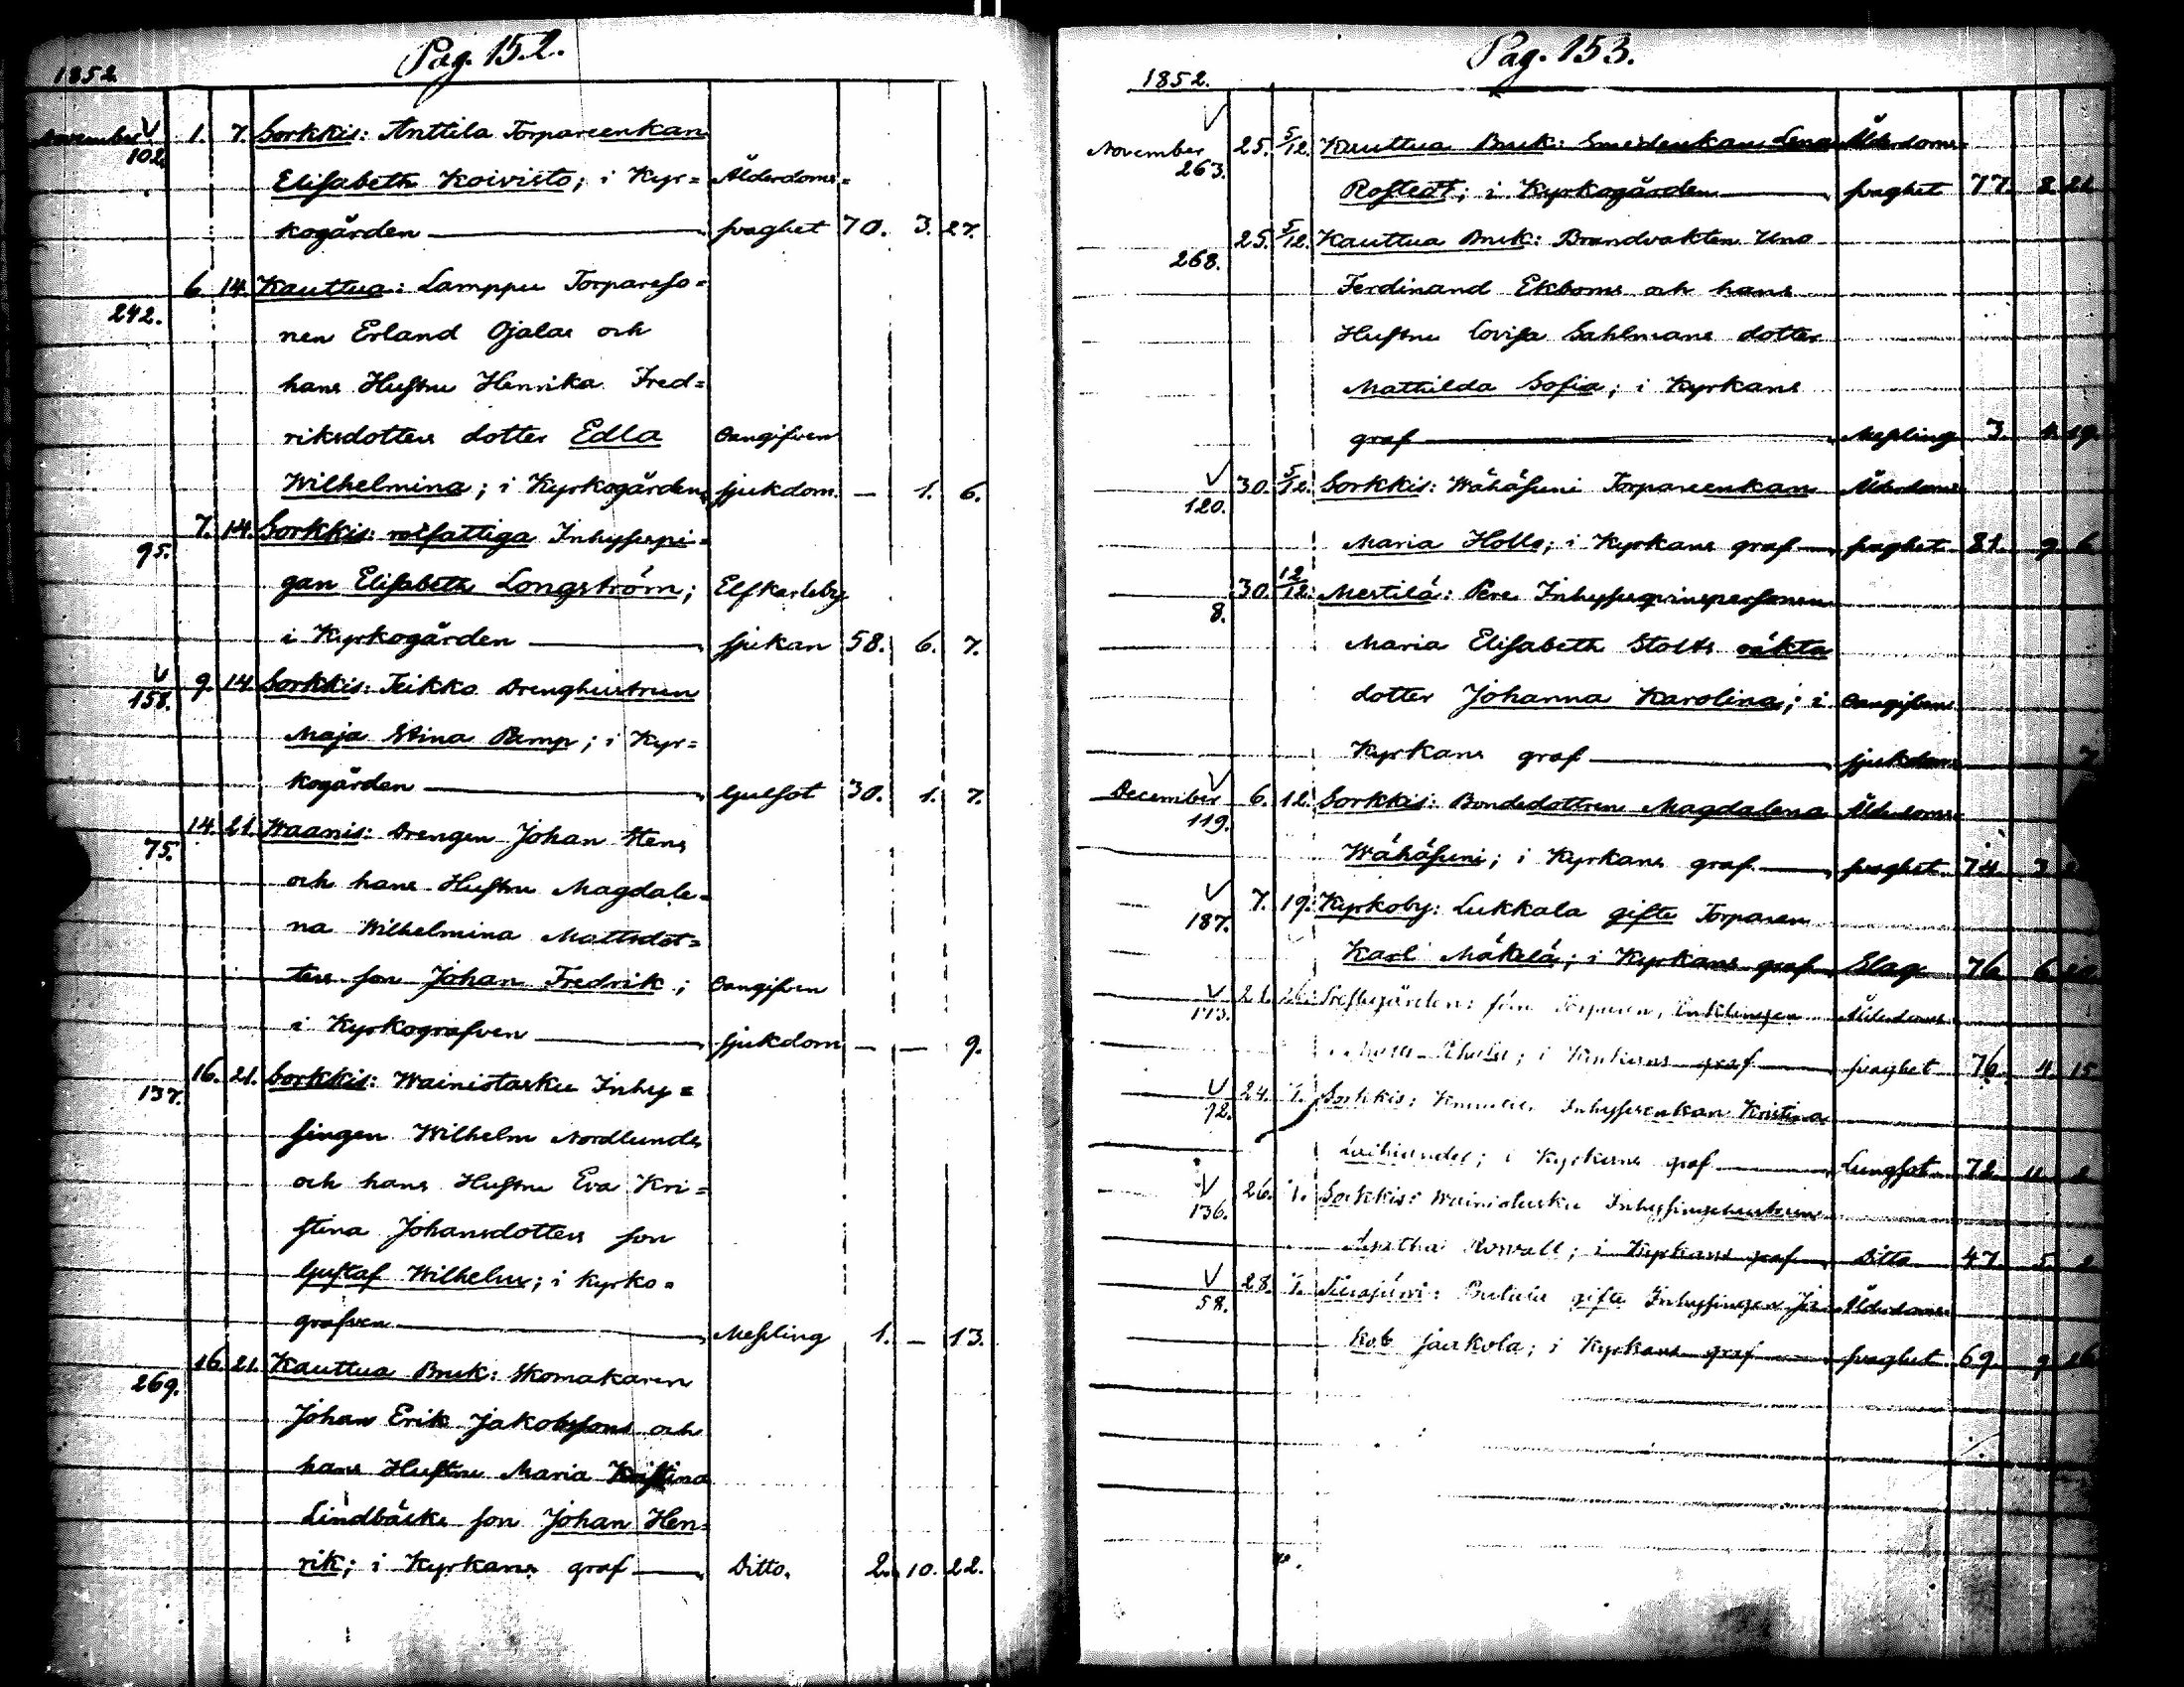 Pag. 152.
1852
November 102. 1. 7. Sorkkis: Anttila Torpareenkan
Elisabeth Koivisto; i Kyr= Ålderdoms=
kogården svaghet 70. 3. 27.
242. 6. 14. Kauttua: Lamppu Torpareso=
nen Erland Ojalas och
hans Hustru Henrika Fred=
riksdotters dotter Edla Oangifven
Wilhelmina; i Kyrkogården sjukdom. — 1. 6.
95. 7. 14. Sorkkis: rotfattiga Inhysespi=
gan Elisabeth Longström; Elfkarleby
i Kyrkogården sjukan 58. 6. 7.
158. 9. 14. Sorkkis: Teikko Drenghustrun
Maja Stina Pamp; i Kyr=
kogården Gulsot 30. 1. 7.
75. 14. 21. Waanis: Drengen Johan Stens
och hans Hustru Magdale=
na Wilhelmina Mattsdot=
ters son Johan Fredrik; Oangifven
i Kyrkografven sjukdom — — 9.
137. 16. 21. Sorkkis: Wainiotasku Inhy=
singen Wilhelm Nordlunds
och hans Hustru Eva Kri=
stina Johansdotters son
Gustaf Wilhelm; i Kyrko=
grafven Messling 1. — 13.
269. 16. 21. Kauttua Bruk: Skomakaren
Johan Erik Jakobssons och
hans Hustru Maria Kristina
Lindbäcks son Johan Hen=
rik; i Kyrkans graf Ditto. 2. 10. 22.
Pag. 153.
1852.
November 263. 25. 5/12. Kauttua Bruk: Smedenkan Lena Ålderdoms=
Rostedt; i Kyrkogården svaghet 77. 2. 21
268. 25. 5/12. Kauttua Bruk: Brandvakten Uno
Ferdinand Ekboms och hans
Hustru Lovisa Sahlmans dotter
Mathilda Sofia; i Kyrkans
graf Messling 3. 4. 19.
120. 30. 5/12. Sorkkis: Wähäsuni Torpareenkan Ålderdoms
Maria Hollo; i Kyrkans graf svaghet 81. 9. 6
8. 30. 12/12. Mestilä: Pere Inhysesqvinspersonen
Maria Elisabeth Stolts oäkta
dotter Johanna Karolina; i Oangifven
Kyrkans graf sjukdom 7
December 119. 6. 12. Sorkkis: Bondedottren Magdalena Ålderdoms
Wähäsuni; i Kyrkans graf svaghet 74. 3
187. 7. 19. Kyrkoby: Lukkala gifte Torparen
Karl Mäkelä; i Kyrkans graf Slag 76 6
21. Prestegården: Torparen, Enklingen Ålderdoms
i Kyrkans graf svaghet 76. 4. 15
72. 24. Sorkkis: Inhysesenkan Kristina
i Kyrkans graf Lungsot 72 11
136. 26. Sorkkis: Wainiotasku Inhysingshustrun
Agatha Rosvall; i Kyrkans graf Ditto 47. 5.
58. 28. gifte Inhysingen Ja Ålderdoms
kob Jaakola; i Kyrkans graf svaghet 69. 9 26